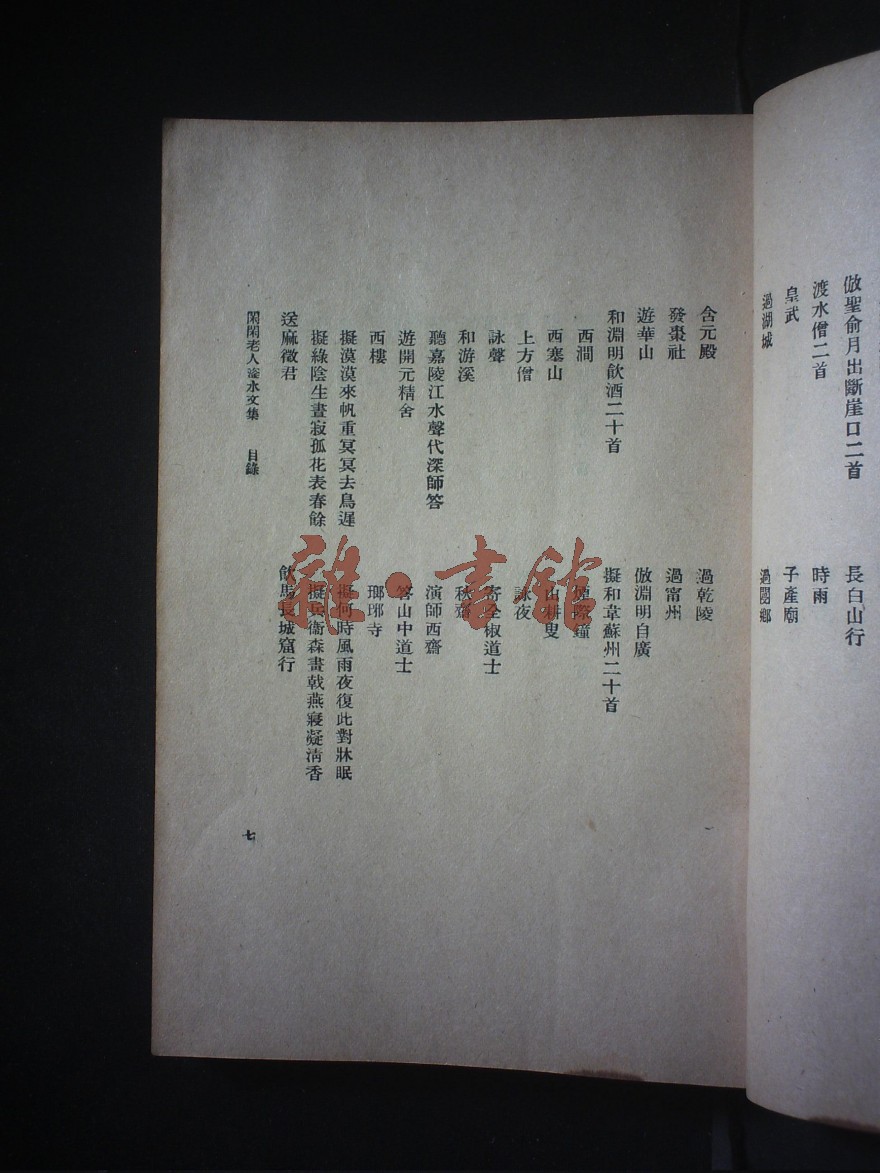 倣聖俞月出斷崖口二首　長白山行
渡水僧二首　時雨
皇武　子產廟
過湖城　過閿鄉
含元殿　過乾陵
發棗社　過甯州
遊華山　倣淵明自廣
和淵明飲酒二十首　擬和韋蘇州二十首
西澗　煙際鐘
西塞山　山耕叟
上方僧　詠夜
詠聲　寄全椒道士
和游溪　秋齋
聽嘉陵江水聲代深師答　演師西齋
遊開元精舍　答山中道士
西樓　瑯琊寺
擬漠漠來帆重冥冥去鳥遲　擬何時風雨夜復此對牀眠
擬綠陰生晝寂孤花表春餘　擬兵衞森畫戟燕寢凝淸香
送麻徵君　飲馬長城窟行
閑閑老人滏水文集　目錄　七
雜·書館